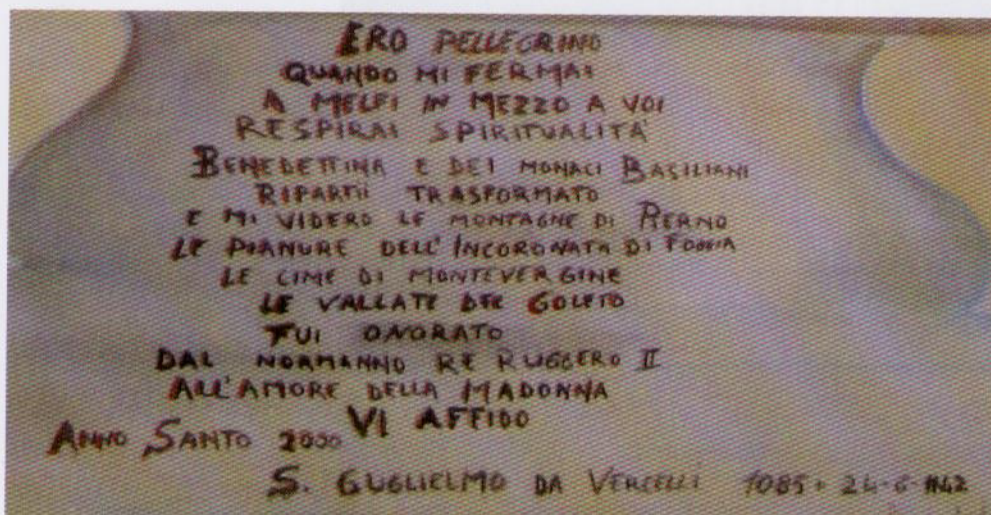 ERO PELLEGRINO
QUANDO MI FERMAI
A MELFI IN MEZZO A VOI
RESPIRAI SPIRITUALITÀ
BENEDETTINA E DEI MONACI BASILIANI
RIPARTII TRASFORMATO
E MI VIDERO LE MONTAGNE DI PIERNO
LE PIANURE DELL'INCORONATA DI FOGGIA
LE CIME DI MONTEVERGINE
LE VALLATE DEL GOLETO
FUI ONORATO
DAL NORMANNO RE RUGGERO II
ALL'AMORE DELLA MADONNA
VI AFFIDO
ANNO SANTO 2000
S. GUGLIELMO DA VERCELLI 1085 + 24-6-1142